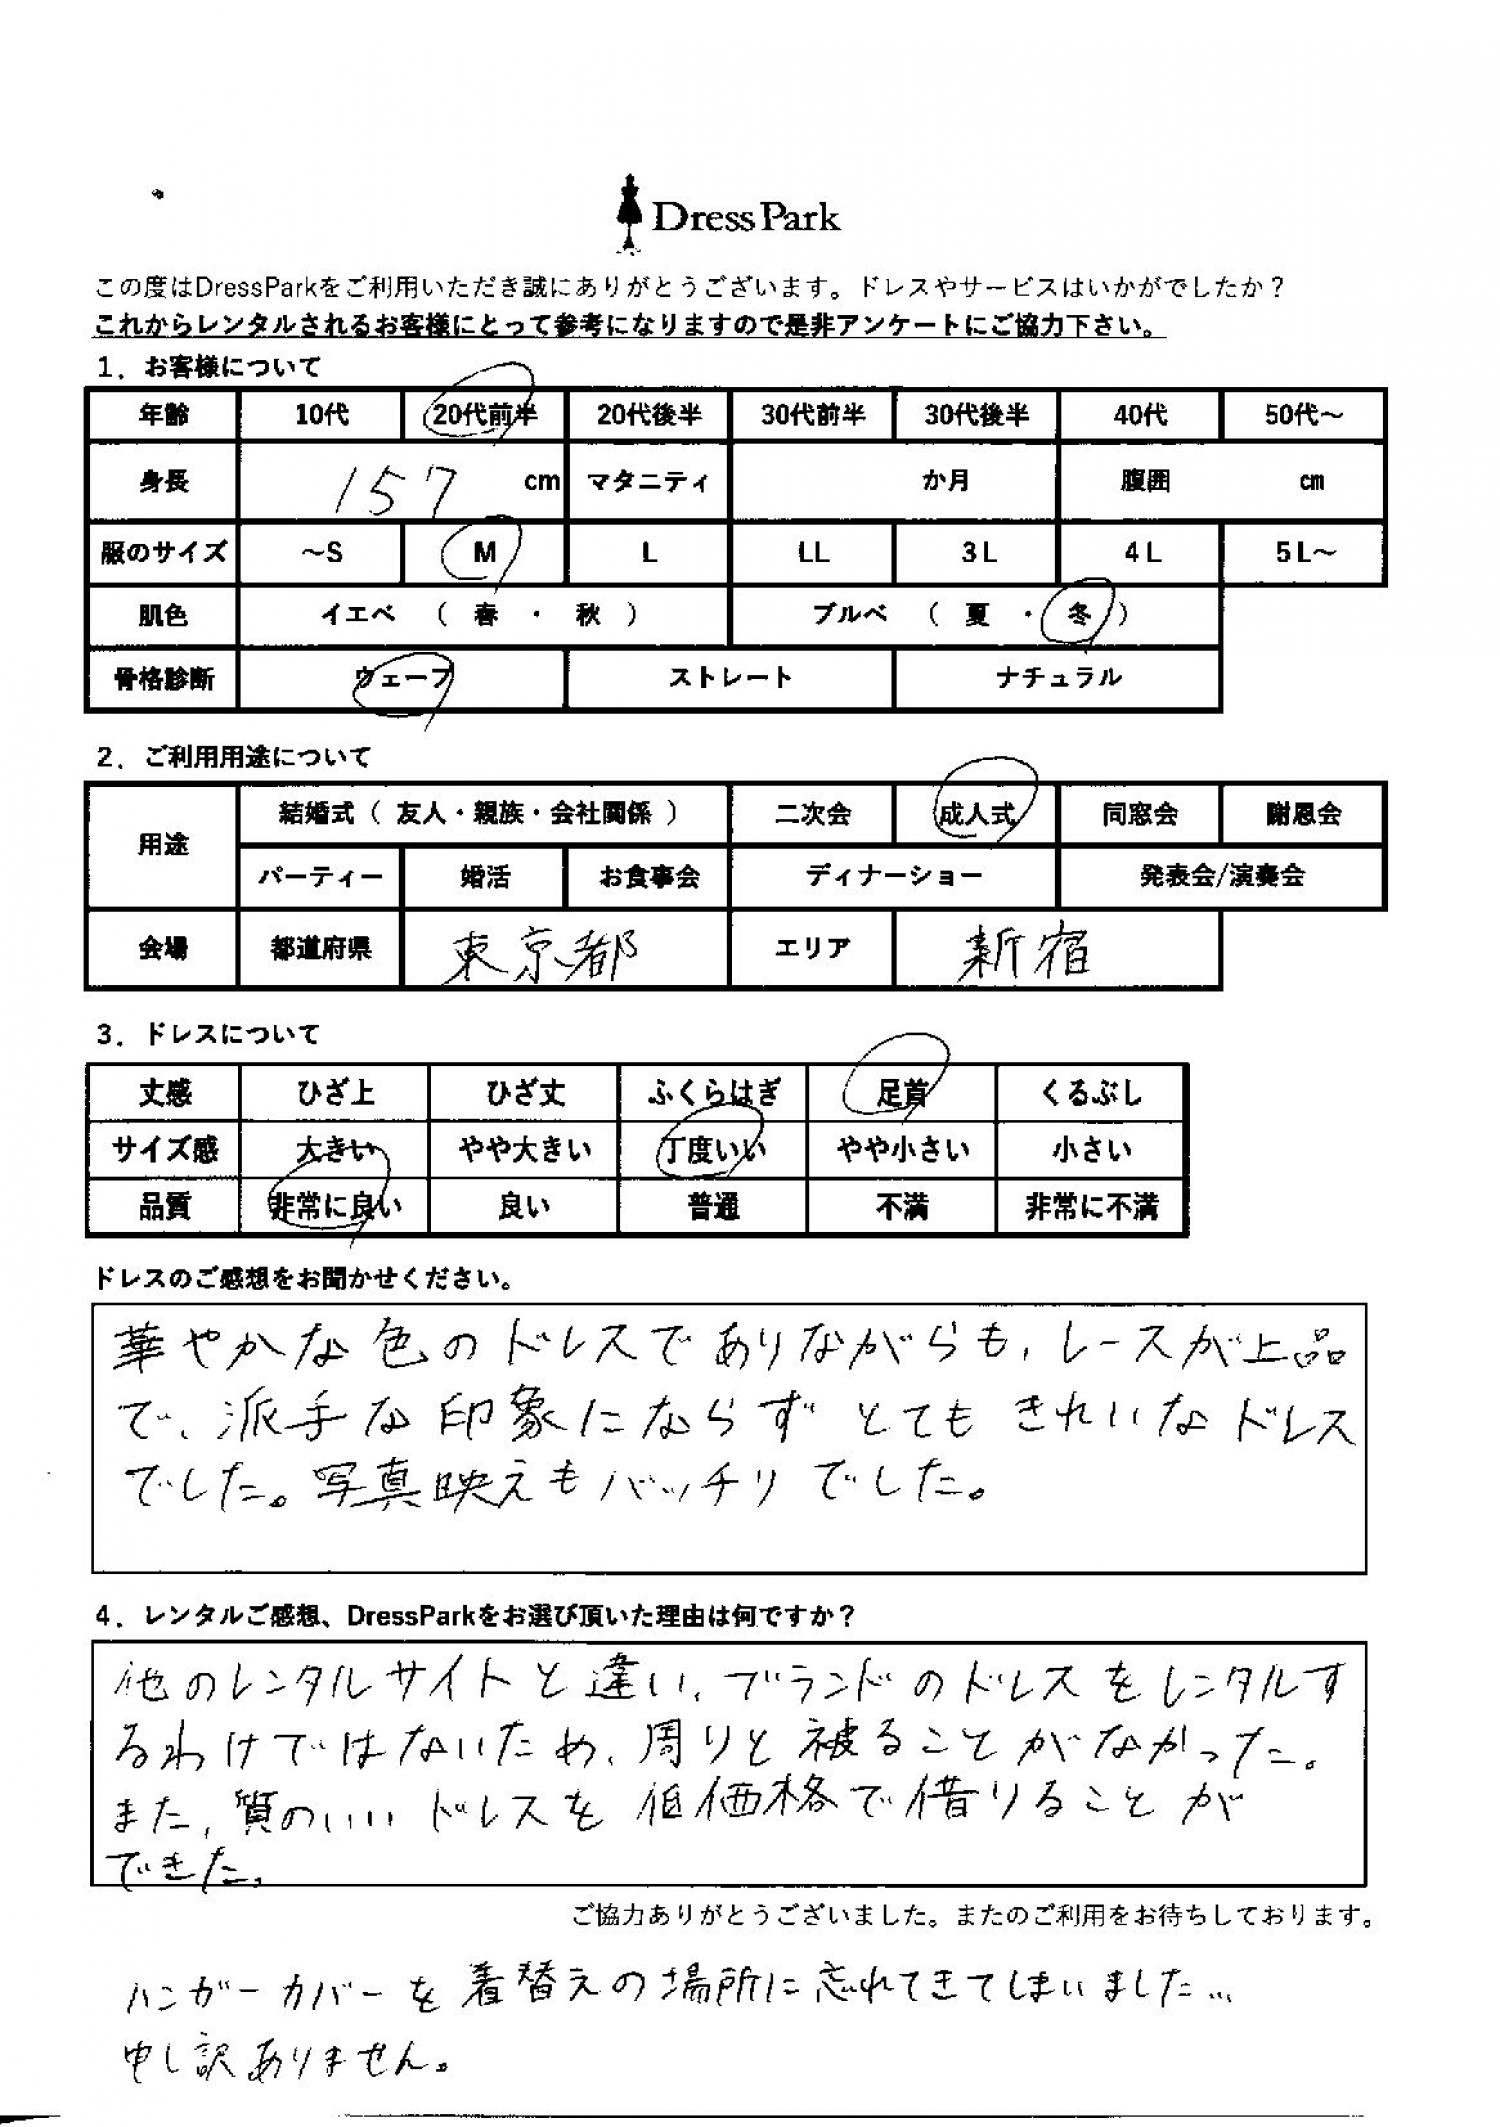 DressPark
この度はDressParkをご利用いただき誠にありがとうございます。ドレスやサービスはいかがでしたか？
これからレンタルされるお客様にとって参考になりますので是非アンケートにご協力下さい。
1．お客様について
年齢 10代 20代前半 20代後半 30代前半 30代後半 40代 50代～
身長 157 cm マタニティ か月 腹囲 cm
服のサイズ ～S M L LL 3L 4L 5L～
肌色 イエベ （ 春 ・ 秋 ） ブルベ （ 夏 ・ 冬 ）
骨格診断 ウェーブ ストレート ナチュラル
2．ご利用用途について
用途 結婚式（ 友人・親族・会社関係 ） 二次会 成人式 同窓会 謝恩会
パーティー 婚活 お食事会 ディナーショー 発表会/演奏会
会場 都道府県 東京都 エリア 新宿
3．ドレスについて
丈感 ひざ上 ひざ丈 ふくらはぎ 足首 くるぶし
サイズ感 大きい やや大きい 丁度いい やや小さい 小さい
品質 非常に良い 良い 普通 不満 非常に不満
ドレスのご感想をお聞かせください。
華やかな色のドレスでありながらも、レースが上品
で、派手な印象にならずとてもきれいなドレス
でした。写真映えもバッチリでした。
4．レンタルご感想、DressParkをお選び頂いた理由は何ですか？
他のレンタルサイトと違い、ブランドのドレスをレンタルす
るわけではないため、周りと被ることがなかった。
また、質のいいドレスを低価格で借りることが
できた。
ご協力ありがとうございました。またのご利用をお待ちしております。
ハンガーカバーを着替えの場所に忘れてきてしまいました…
申し訳ありません。